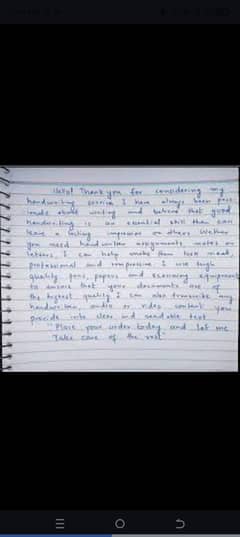 Hello! Thank you for considering my
handwriting service I have always been pass
ionate about writing and believe that good
handwriting is an essential skill that can
leave a lasting impression on others Wether
you need handwritten assignments, notes or
letters, I can help make them look neat,
professional and impressive. I use high
quality pens, papers and scanning equipment
to ensure that your documents are of
the highest quality I can also transcribe any
handwritten, audio or video content you
provide into clear and readable text.
"Place your order today and let me
Take care of the rest"